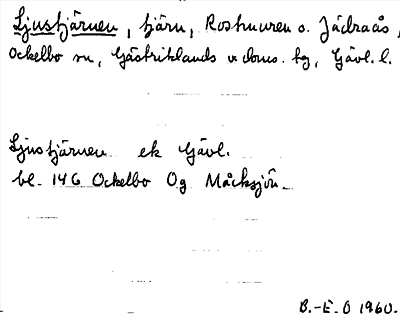 Ljustjärnen, tjärn, Rostmuren o. Jädraås,
Ockelbo sn, Gästriklands v doms. hg, Gävl. l.
Ljustjärnen ek Gävl.
bl. 146 Ockelbo Og Måcksjön
B.-E. Ö 1960.